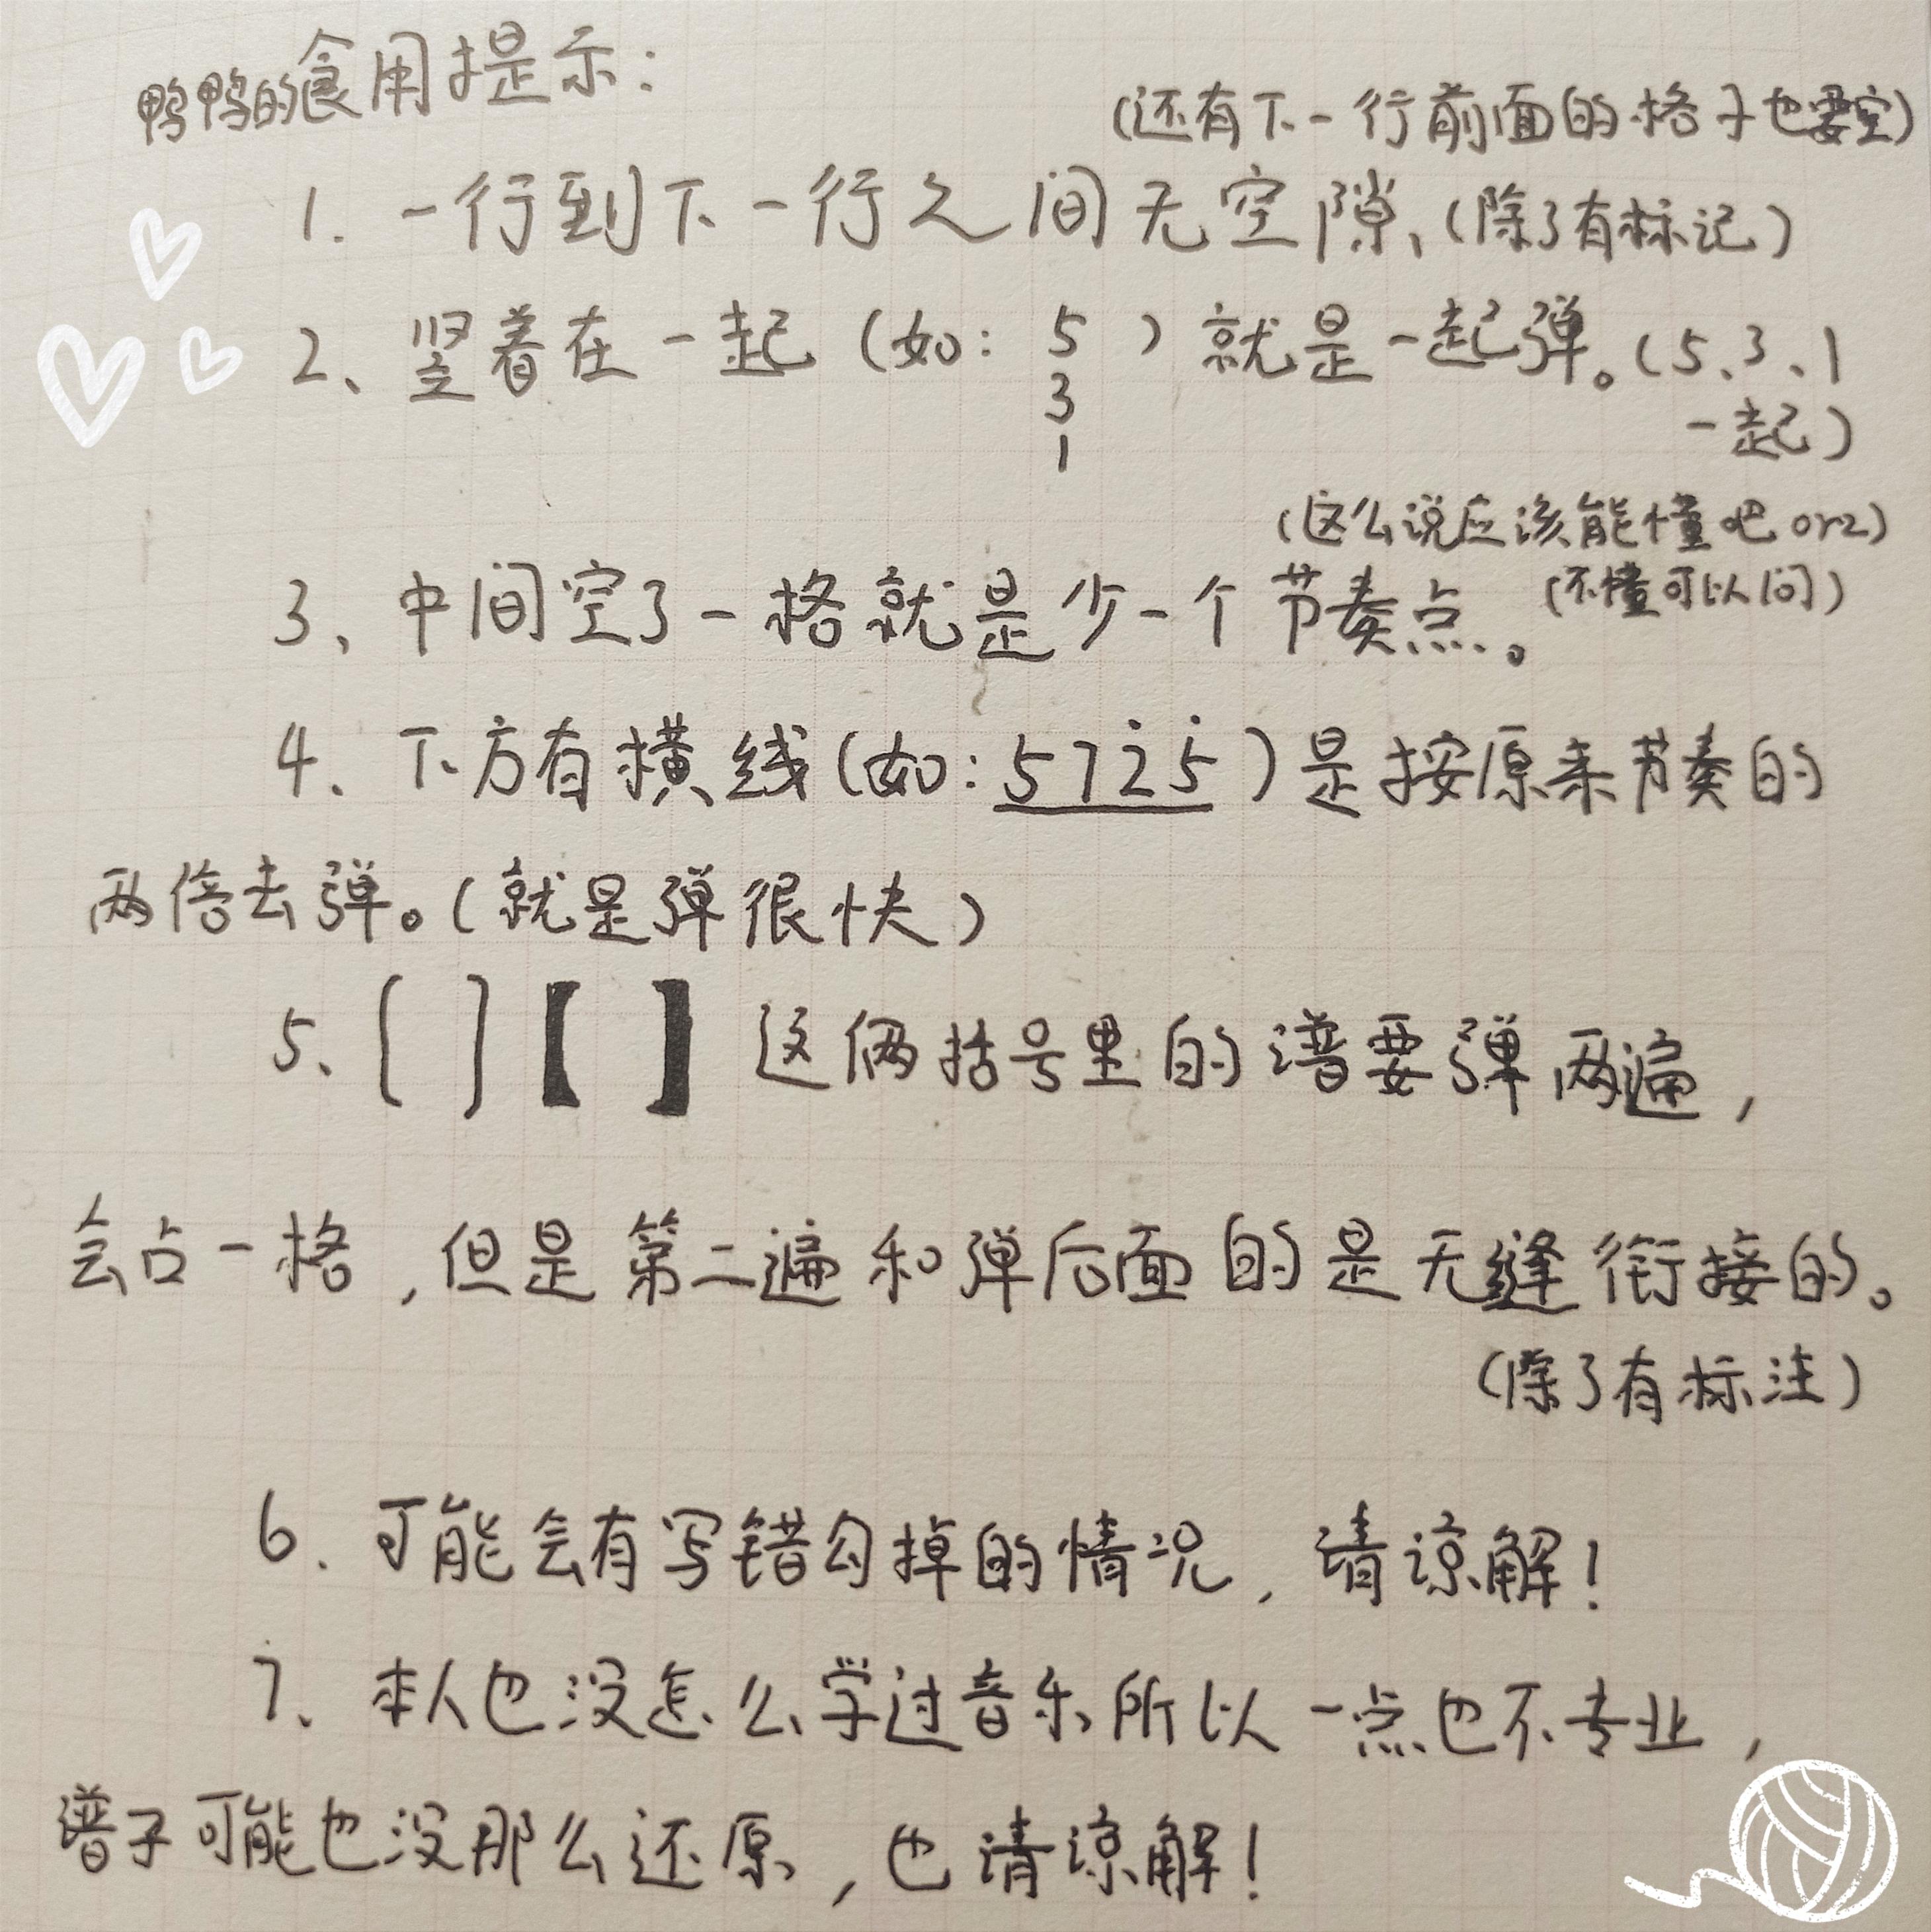 鸭鸭的食用提示：
(还有下一行前面的格子也要空)
1. 一行到下一行之间无空隙、(除了有标记)
2、竖着在一起(如：5)就是一起弹。(5、3、1
3
1
一起)
(这么说应该能懂吧orz)
3、中间空了一格就是少一个节奏点。(不懂可以问)
4、下方有横线(如：572̇5̇)是按原来节奏的
两倍去弹。(就是弹很快)
5、[ ]【 】这俩括号里的谱要弹两遍，
会占一格，但是第二遍和弹后面的是无缝衔接的。
(除了有标注)
6. 可能会有写错勾掉的情况，请谅解！
7、本人也没怎么学过音乐所以一点也不专业，
谱子可能也没那么还原，也请谅解！